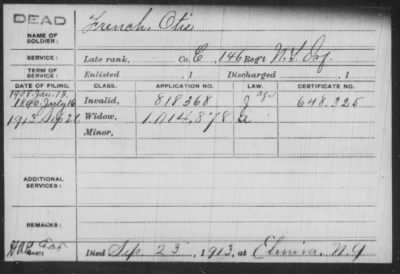 DEAD
NAME OF SOLDIER: French, Otis
SERVICE: Late rank, Co. E, 146 Reg't N.Y. Inf.
TERM OF SERVICE: Enlisted , 1 Discharged , 1
DATE OF FILING. CLASS. APPLICATION NO. LAW. CERTIFICATE NO.
1908. Jan. 13.
1890. July 16 Invalid, 818368 J 648.325
1913 Sep 26 Widow, 1,014,878 a
Minor,
ADDITIONAL SERVICES:
REMARKS:
Died Sep. 23, 1913, at Elmira, N.Y